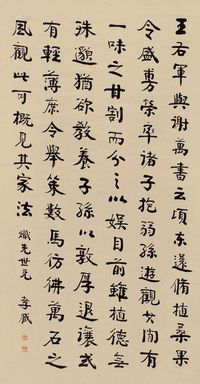 王右軍與謝萬書云頃東遊還脩植桑果
今盛旉榮率諸子抱弱孫遊觀其間有
一味之甘割而分之以娛目前雖植德無
殊邈猶欲教養子孫以敦厚退讓或
有輕薄庶令舉策數馬彷彿萬石之
風觀此可概見其家法 熾先世兄